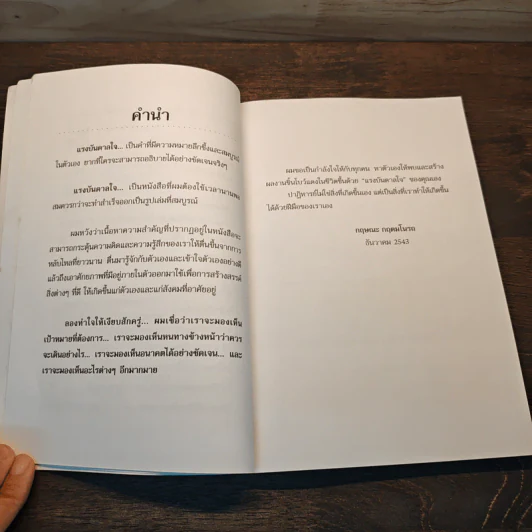 คำนำ
แรงบันดาลใจ... เป็นคำที่มีความหมายลึกซึ้งและสมบูรณ์
ในตัวเอง ยากที่ใครจะสามารถอธิบายได้อย่างชัดเจนจริงๆ
แรงบันดาลใจ... เป็นหนังสือที่ผมต้องใช้เวลานานพอ
สมควรกว่าจะทำสำเร็จออกเป็นรูปเล่มที่สมบูรณ์
ผมหวังว่าเนื้อหาความสำคัญที่ปรากฏอยู่ในหนังสือจะ
สามารถกระตุ้นความคิดและความรู้สึกของเราให้ตื่นขึ้นจากการ
หลับใหลที่ยาวนาน ตื่นมารู้จักกับตัวเองและเข้าใจตัวเองอย่างดี
แล้วดึงเอาศักยภาพที่มีอยู่ภายในตัวออกมาใช้เพื่อการสร้างสรรค์
สิ่งต่างๆ ที่ดี ให้เกิดขึ้นแก่ตัวเองและแก่สังคมที่อาศัยอยู่
ลองทำใจให้เงียบสักครู่... ผมเชื่อว่าเราจะมองเห็น
เป้าหมายที่ต้องการ... เราจะมองเห็นหนทางข้างหน้าว่าควร
จะเดินอย่างไร... เราจะมองเห็นอนาคตได้อย่างชัดเจน... และ
เราจะมองเห็นอะไรต่างๆ อีกมากมาย
ผมขอเป็นกำลังใจให้กับทุกคน หาตัวเองให้พบและสร้าง
ผลงานชิ้นโบว์แดงในชีวิตขึ้นด้วย "แรงบันดาลใจ" ของคุณเอง
ปาฏิหารย์ไม่ใช่สิ่งที่เกิดขึ้นเอง แต่เป็นสิ่งที่เราทำให้เกิดขึ้น
ได้ด้วยฝีมือของเราเอง
กฤษณะ กฤตมโนรถ
ธันวาคม 2543